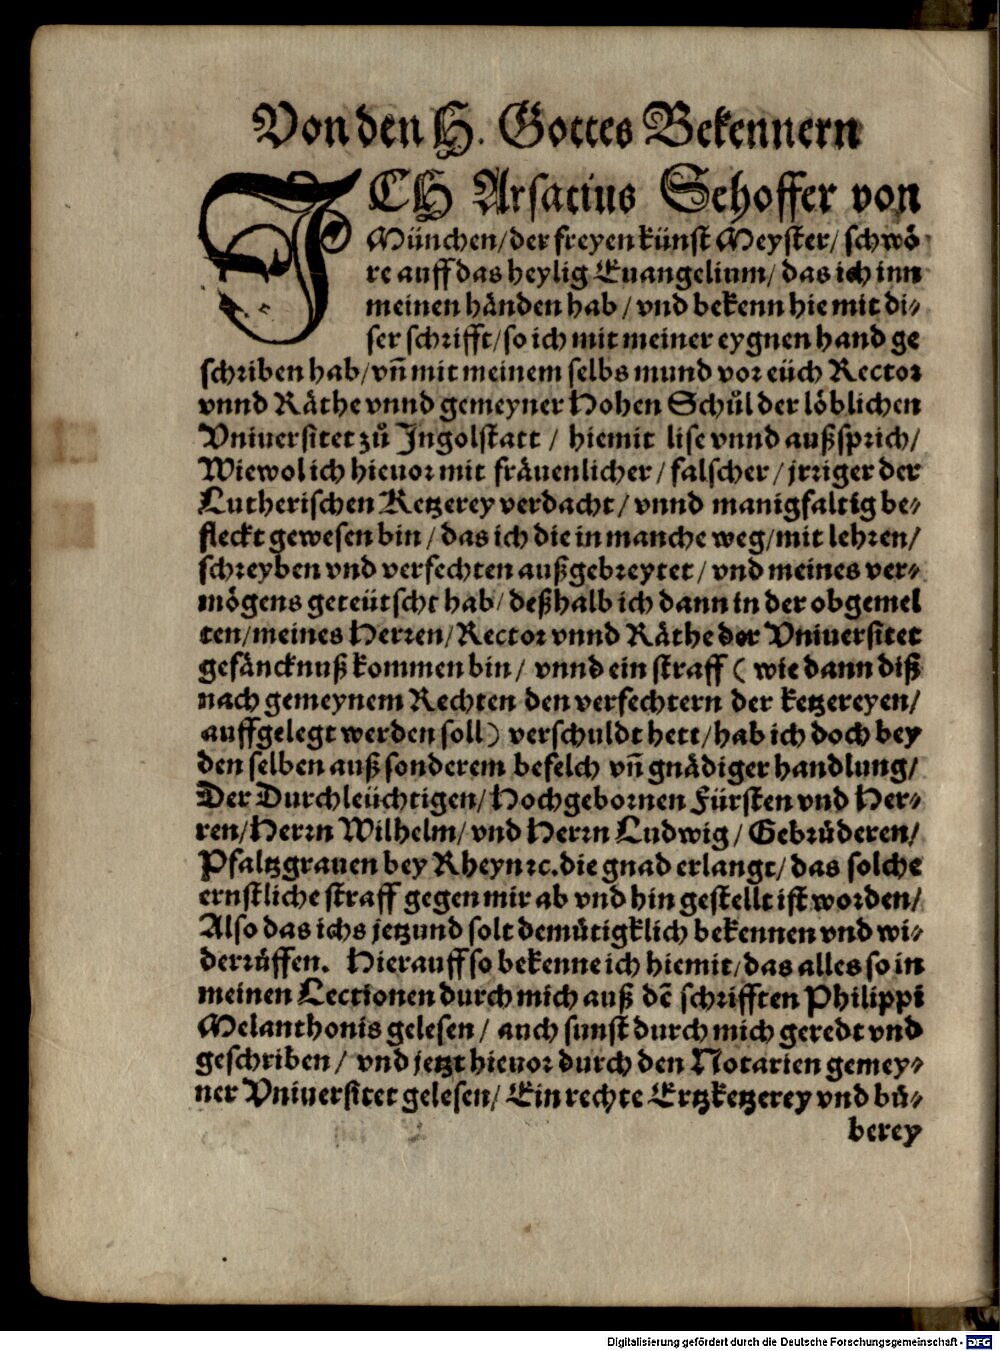 Von den H. Gottes Bekennern
ICH Arsacius Sehoffer von
München/ der freyen künst Meyster/ schwö
re auff das heylig Euangelium/ das ich inn
meinen händen hab/ vnd bekenn hie mit di⸗
ser schrifft/ so ich mit meiner eygnen hand ge
schriben hab/ vñ mit meinem selbs mund vor eüch Rector
vnnd Räthe vnnd gemeyner Hohen Schůl der löblichen
Vniuersitet zů Ingolstatt/ hiemit lise vnnd außsprich/
Wiewol ich hieuor mit fräuenlicher/ falscher/ jrriger der
Lutherischen Ketzerey verdacht/ vnnd manigfaltig be⸗
fleckt gewesen bin/ das ich die in manche weg/ mit lehren/
schreyben vnd verfechten außgebreytet/ vnd meines ver⸗
mögens geteütscht hab/ deßhalb ich dann in der obgemel
ten/ meines Herren/ Rector vnnd Räthe der Vniuersitet
gefäncknuß kommen bin/ vnnd ein straff ( wie dann diß
nach gemeynem Rechten den verfechtern der ketzereyen/
auffgelegt werden soll) verschuldt hett/ hab ich doch bey
den selben auß sonderem befelch vñ gnädiger handlung/
Der Durchleüchtigen/ Hochgebornen Fürsten vnd Her⸗
ren/ Herrn Wilhelm/ vnd Herrn Ludwig/ Gebrüderen/
Pfaltzgrauen bey Rheyn ꝛc. die gnad erlangt/ das solche
ernstliche straff gegen mir ab vnd hin gestellt ist worden/
Also das ichs jetzund solt demütigklich bekennen vnd wi⸗
derrůffen. Hierauff so bekenne ich hiemit/ das alles so in
meinen Lectionen durch mich auß dẽ schrifften Philippi
Melanthonis gelesen/ auch sunst durch mich geredt vnd
geschriben/ vnd jetzt hieuor durch den Notarien gemey⸗
ner Vniuersitet gelesen/ Ein rechte Ertzketzerey vnd bů⸗
berey
Digitalisierung gefördert durch die Deutsche Forschungsgemeinschaft - DFG